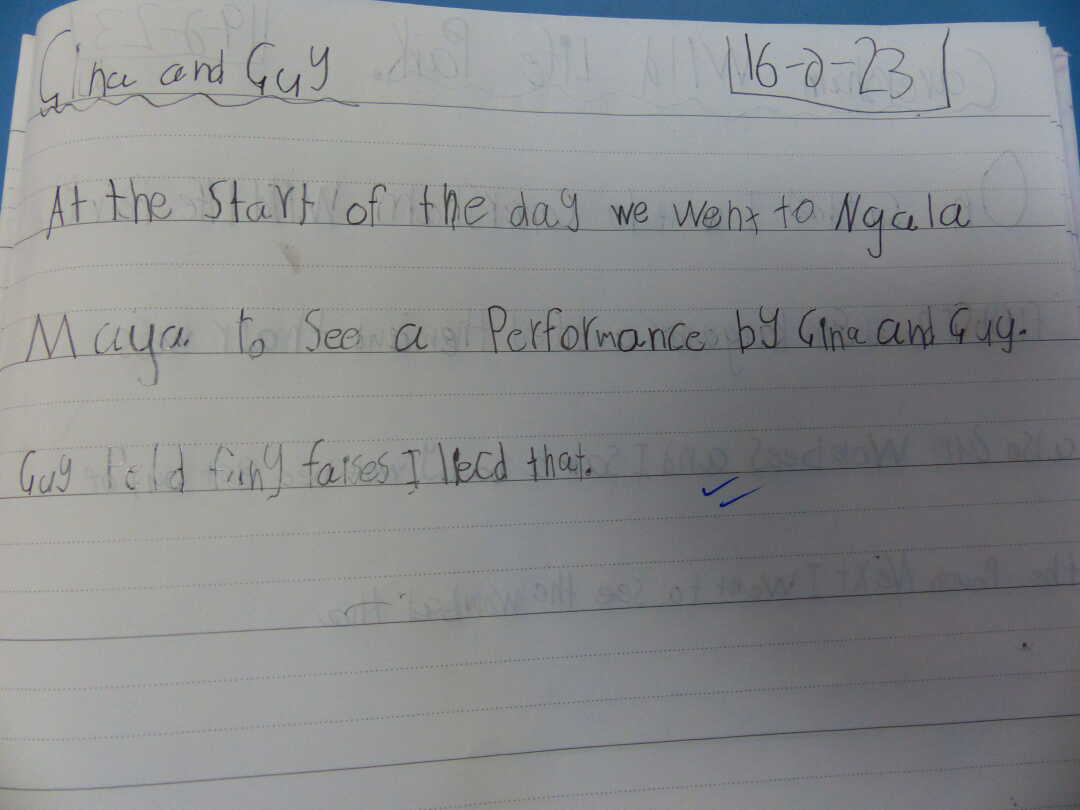 Gina and Guy 16-2-23
At the Start of the day we went to Ngala
Maya. to See a Performance by Gina and Guy.
Guy told funy farses I lecd that.